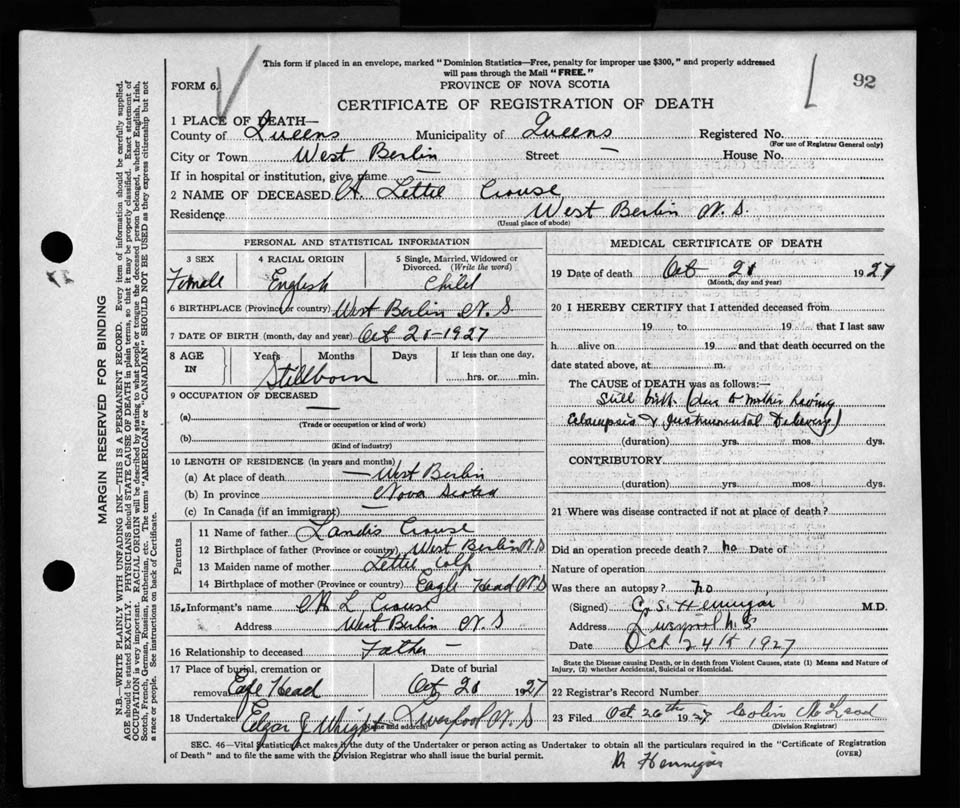 This form if placed in an envelope, marked "Dominion Statistics—Free, penalty for improper use $300," and properly addressed
will pass through the Mail "FREE."
FORM 6.
PROVINCE OF NOVA SCOTIA
92
CERTIFICATE OF REGISTRATION OF DEATH
1 PLACE OF DEATH—
County of Queens Municipality of Queens Registered No.
(For use of Registrar General only)
City or Town West Berlin Street — House No.
If in hospital or institution, give name —
2 NAME OF DECEASED A. Lettie Crouse
Residence West Berlin N.S.
(Usual place of abode)
PERSONAL AND STATISTICAL INFORMATION
3 SEX 4 RACIAL ORIGIN 5 Single, Married, Widowed or
Divorced. (Write the word)
Femell English Child
6 BIRTHPLACE (Province or country) West Berlin N.S
7 DATE OF BIRTH (month, day and year) Oct 21-1927
8 AGE IN Years Months Days If less than one day,
hrs. or min.
Stillborn
9 OCCUPATION OF DECEASED
(a) —
(Trade or occupation or kind of work)
(b)
(Kind of industry)
10 LENGTH OF RESIDENCE (in years and months)
(a) At place of death — West Berlin
(b) In province Nova Scotia
(c) In Canada (if an immigrant) —
Parents
11 Name of father Landis Crouse
12 Birthplace of father (Province or country) West Berlin N.S
13 Maiden name of mother Lettie Colp
14 Birthplace of mother (Province or country) Eagle Head N.S
15 Informant's name L Crouse
Address West Berlin N S
16 Relationship to deceased Father —
17 Place of burial, cremation or Date of burial
removal Eagle Head Oct 21 1927
18 Undertaker Edgar J Wright Liverpool N.S
(Name and address)
MEDICAL CERTIFICATE OF DEATH
19 Date of death Oct 21 1927
(Month, day and year)
20 I HEREBY CERTIFY that I attended deceased from
19 to 19 that I last saw
h alive on 19 and that death occurred on the
date stated above, at m.
The CAUSE of DEATH was as follows:—
Still birth (due to mother having
Eclampsia & Instrumental Delivery)
(duration) yrs. mos. dys.
CONTRIBUTORY
(duration) yrs. mos. dys.
21 Where was disease contracted if not at place of death?
Did an operation precede death? no Date of
Nature of operation
Was there an autopsy? no
(Signed) C. S. Hennigar M.D.
Address Liverpool N.S
Date Oct 24th 1927
State the Disease causing Death, or in death from Violent Causes, state (1) Means and Nature of
Injury, (2) whether Accidental, Suicidal or Homicidal.
22 Registrar's Record Number
23 Filed Oct. 26th 1927. Colin McLeod
(Division Registrar)
SEC. 46—Vital Statistics Act makes it the duty of the Undertaker or person acting as Undertaker to obtain all the particulars required in the "Certificate of Registration
of Death" and to file the same with the Division Registrar who shall issue the burial permit.
(OVER)
Dr Hennigar
MARGIN RESERVED FOR BINDING
N.B.—WRITE PLAINLY WITH UNFADING INK—THIS IS A PERMANENT RECORD. Every item of information should be carefully supplied.
AGE should be stated EXACTLY. PHYSICIANS should STATE CAUSE OF DEATH in plain terms, so that it may be properly classified. Exact statement of
OCCUPATION is very important. RACIAL ORIGIN will be described by stating to what people or tongue the deceased person belonged, whether English, Irish,
Scotch, French, German, Russian, Ruthenian, etc. The terms "AMERICAN" or "CANADIAN" SHOULD NOT BE USED as they express citizenship but not
a race or people. See instructions on back of Certificate.